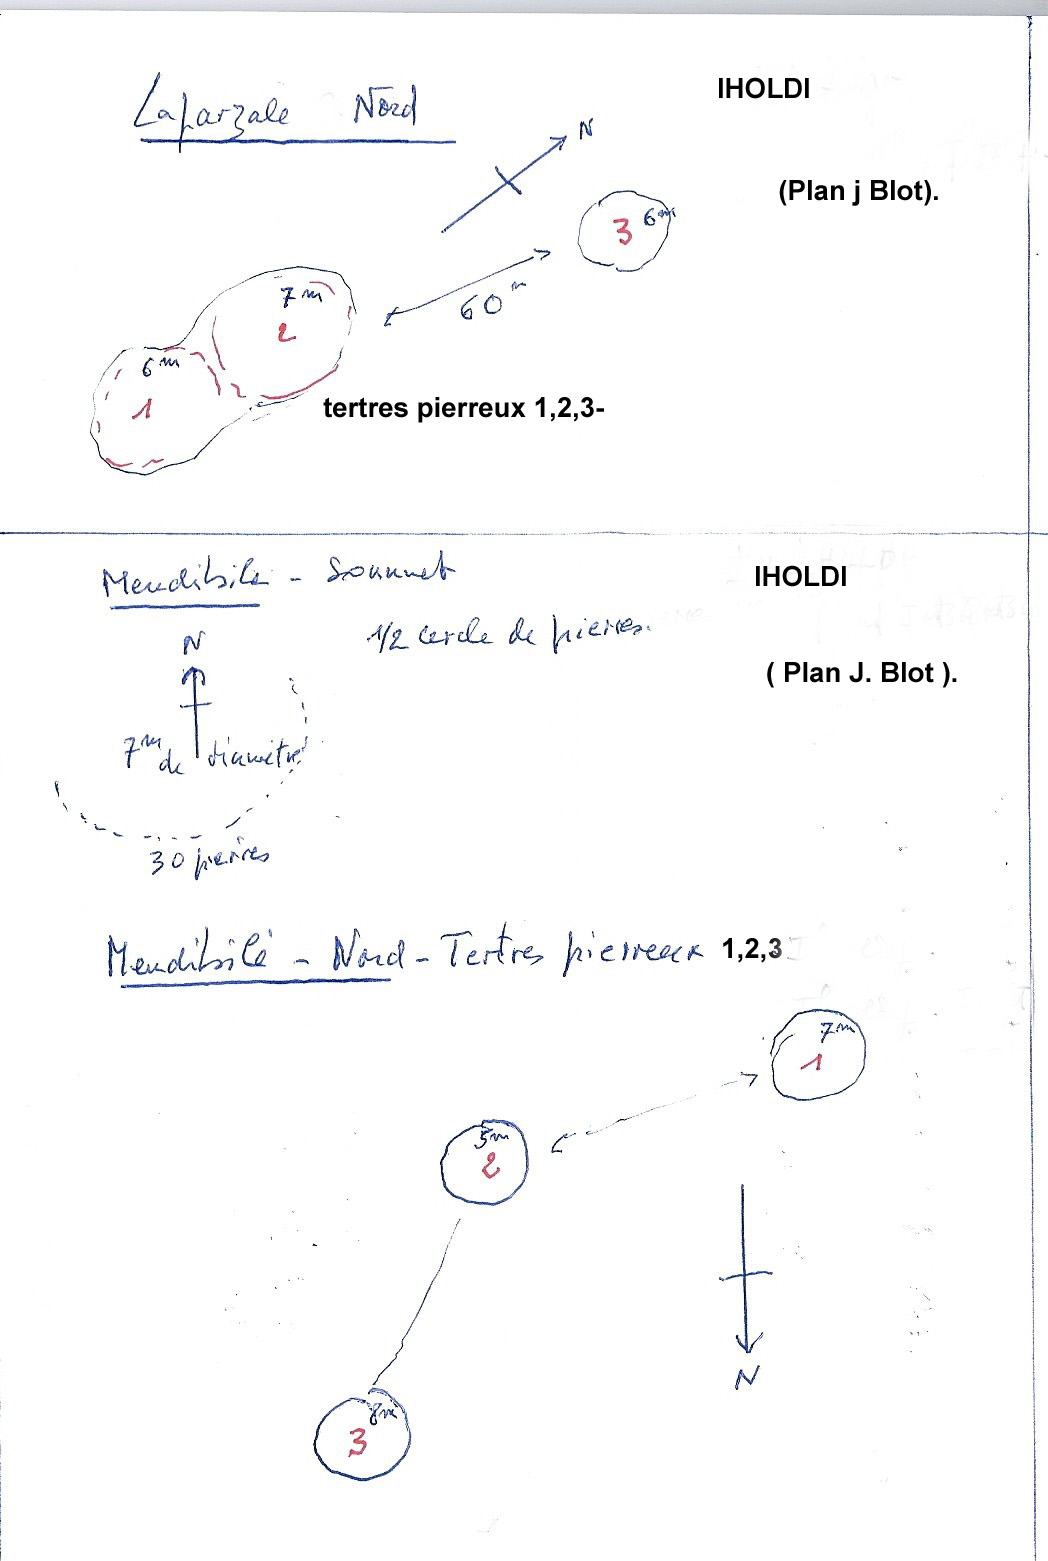 Laparzale Nord
IHOLDI
N
(Plan j Blot).
3 6m
60m
7m
2
6m
1
tertres pierreux 1,2,3-
Mendibile - Sommet
IHOLDI
N
1/2 cercle de pierres.
( Plan J. Blot ).
7m de diamètre
30 pierres
Mendibilé - Nord - Tertres pierreux 1,2,3
7m
1
5m
2
N
8m
3